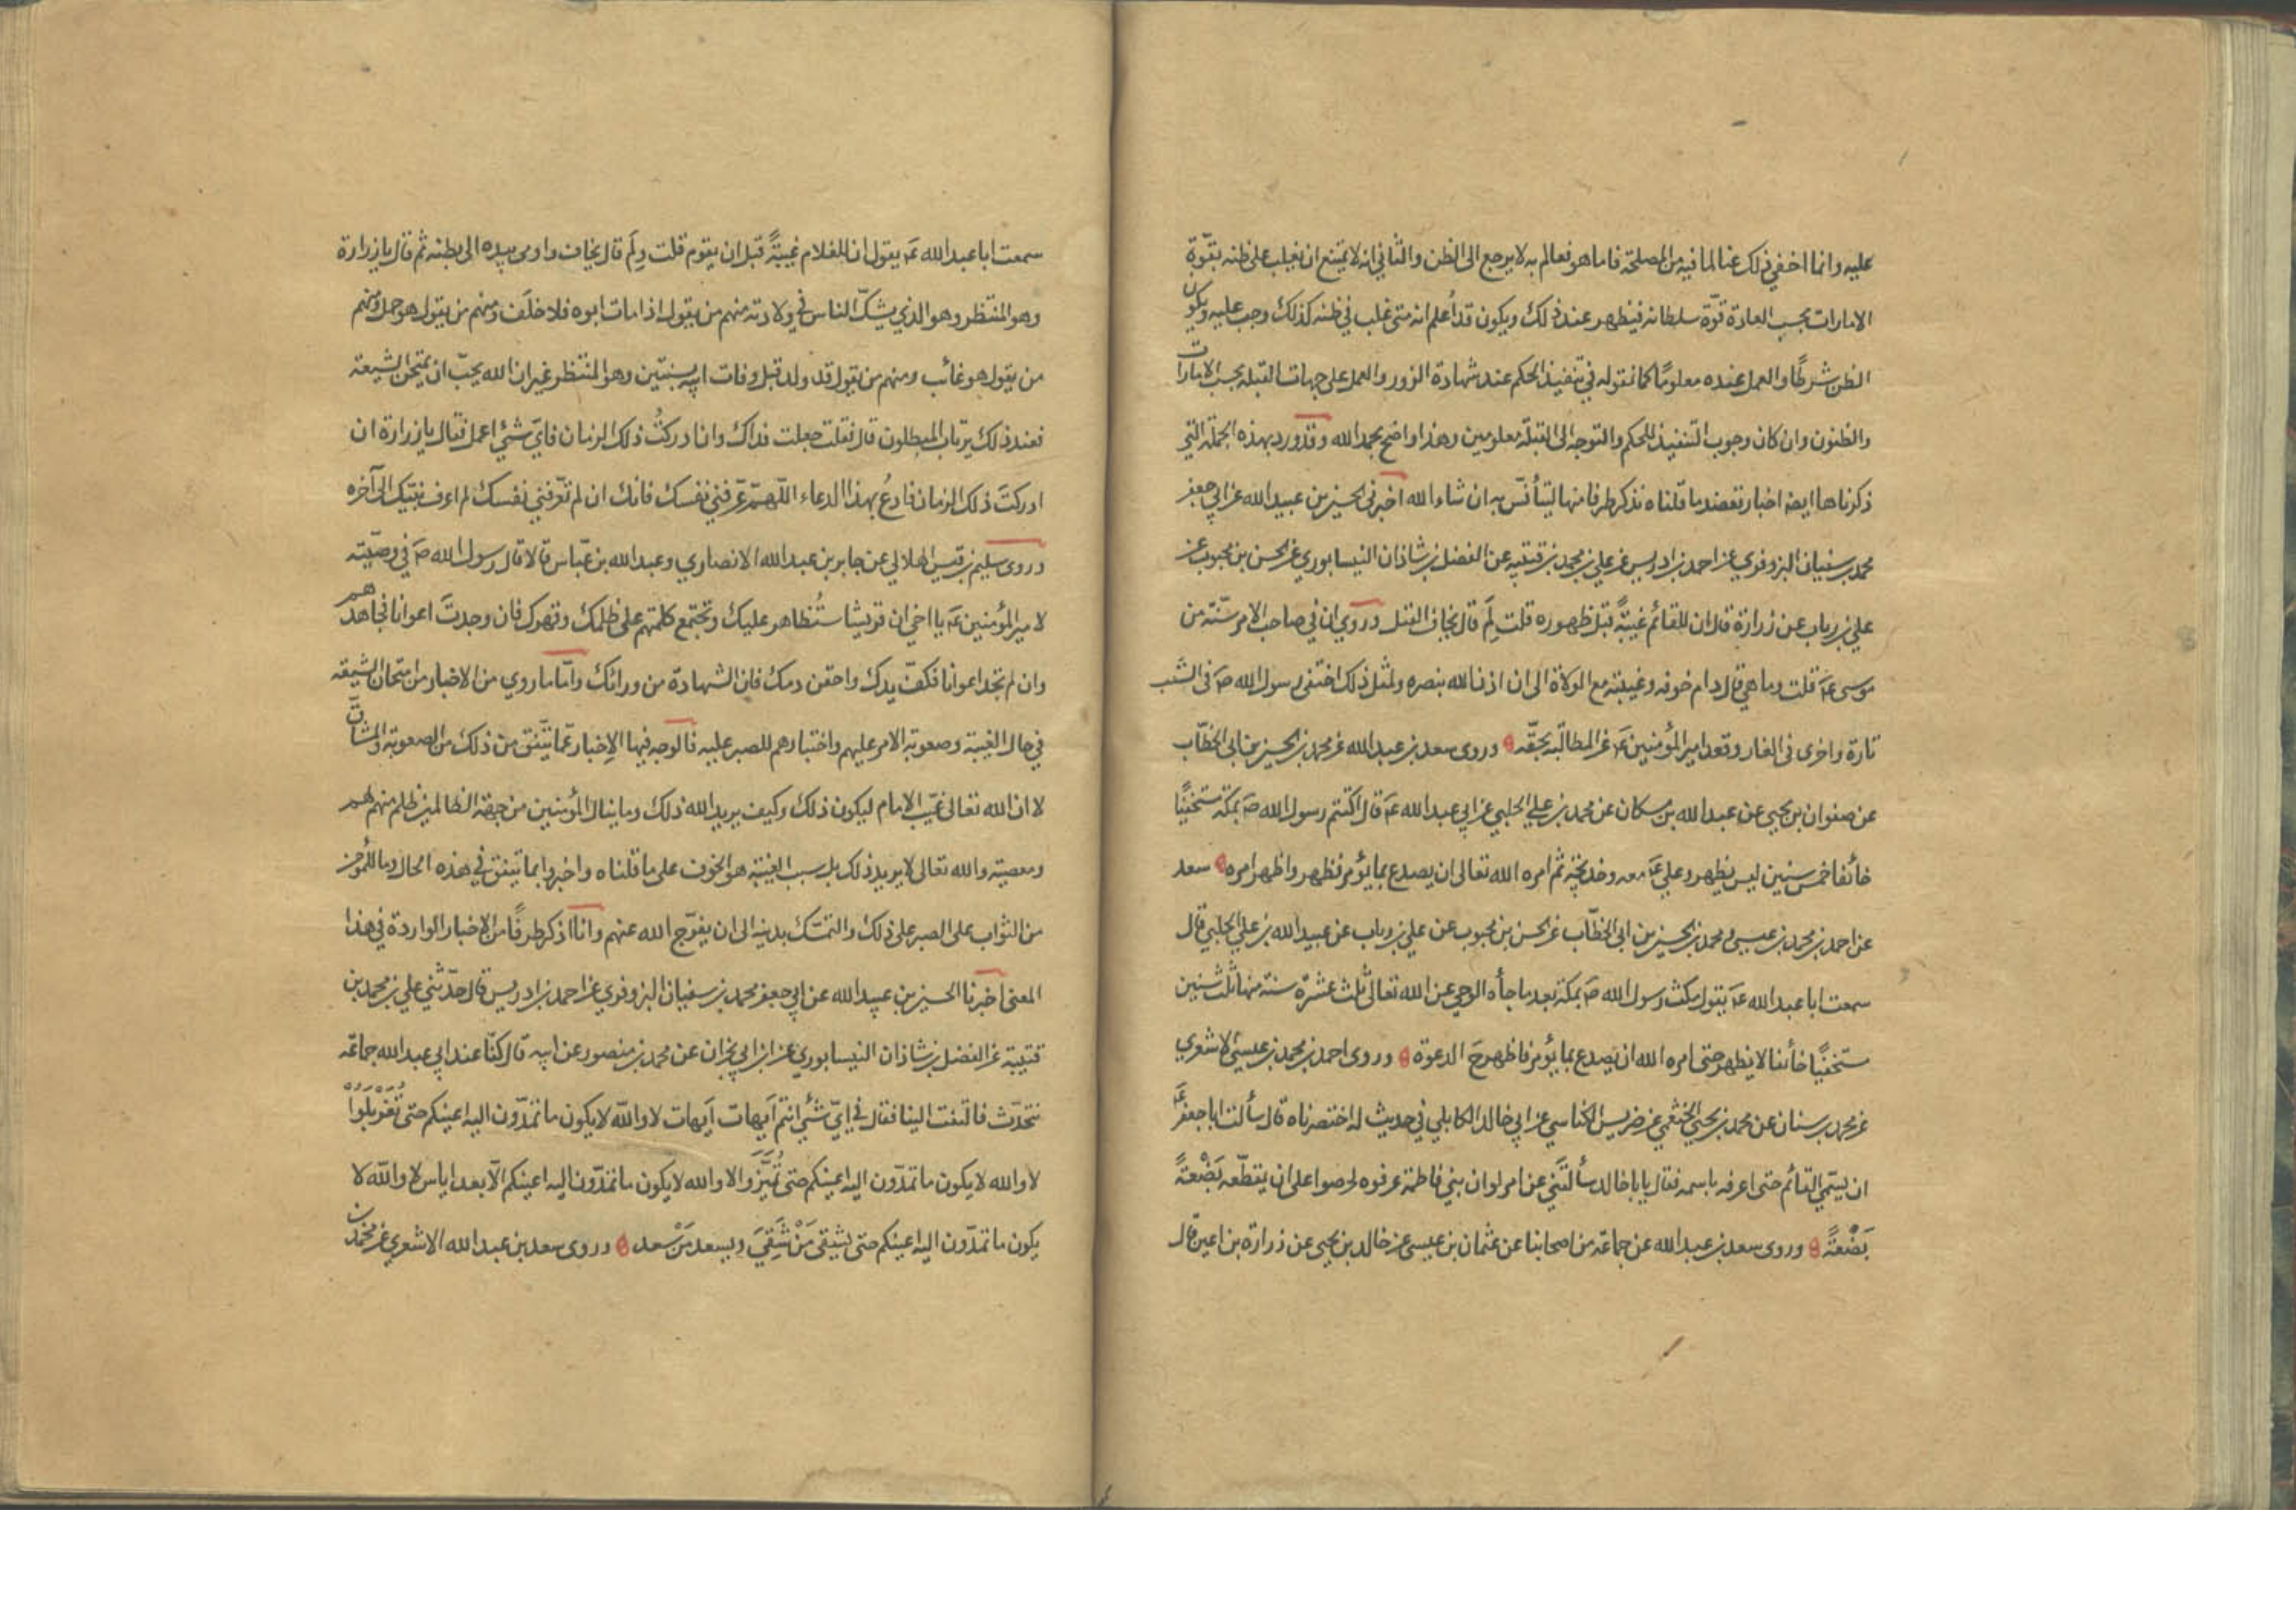 عليه وانما اخفي ذلك عنا لما فيه من المصلحة فاما هو فعالم به لا يرجع الى الظن والثاني انه لا يمتنع ان يغلب على ظنه بقوّة
الامارات بحسب العادة قوّة سلطانه فيظهر عند ذلك ويكون قد أُعلم انه متى غلب في ظنه كذلك وجب عليه ويكون
الظن شرطًا والعمل عنده معلومًا كما نقوله في تنفيذ الحكم عند شهادة الزور والعمل على جهات القبلة بحسب الامارات
والظنون وان كان وجوب التنفيذ للحكم والتوجه الى القبلة معلومين وهذا واضح بحمد الله وقد ورد بهذه الجملة التي
ذكرناها ايضا اخبار تعضد ما قلناه نذكر طرفا منها ليتأنّس به ان شاء الله اخبرني الحسين بن عبيد الله عن ابي جعفر
محمد بن سفيان البزوفري عن احمد بن ادريس عن علي بن محمد بن قتيبه عن الفضل بن شاذان النيسابوري عن الحسن بن محبوب عن
علي بن رياب عن زرارة قال ان للقائم غيبةً قبل ظهوره قلت لِمَ قال يخاف القتل وروي ان في صاحب الامر سنّة من
موسى عَ قلت وما هي قال دام خوفه وغيبته مع الولاة الى ان اذن الله بنصره ولمثل ذلك اختفى رسول الله صَ في الشعب
تارة واخرى في الغار وقعد امير المؤمنين عَ عن المطالبة بحقّه وروى سعد بن عبد الله عن محمد بن الحسين بن ابي الخطّاب
عن صفوان بن يحيى عن عبد الله بن مسكان عن محمد بن علي الحلبي عن ابي عبد الله عَ قال اكتتم رسول الله صَ بمكة مستخفيًا
خائفا خمس سنين ليس يظهر وعلي عَ معه وخديجة ثم امره الله تعالى ان يصدع بما يؤمر فظهر واظهر امره سعد
عن احمد بن محمد بن عيسى ومحمد بن الحسين بن ابي الخطّاب عن الحسن بن محبوب عن علي بن رياب عن عبيد الله بن علي الحلبي قال
سمعت ابا عبد الله عَ يقول مكث رسول الله صَ بمكة بعد ما جاءه الوحي عن الله تعالى ثلث عشرة سنة منها ثلث سنين
مستخفيًا خائفا لا يظهر حتى امره الله ان يصدع بما يؤمر فاظهر حَ الدعوة وروى احمد بن محمد بن عيسى الاشعري
عن محمد بن سنان عن محمد بن يحيى الخثعمي عن ضريس الكناسي عن ابي خالد الكابلي في حديث له اختصرناه قال سألت ابا جعفر عَ
ان يسمّي القائم حتى اعرفه باسمه فقال يا با خالد سألتني عن امر لو ان بني فاطمة عرفوه لحرصوا على ان يقطّعوه بَضْعةً
بَضْعةً وروى سعد بن عبد الله عن جماعة من اصحابنا عن عثمان بن عيسى عن خالد بن يحيى عن زرارة بن اعين قال
سمعت ابا عبد الله عَ يقول ان للغلام غيبةً قبل ان يقوم قلت ولِمَ قال يخاف واومى بيده الى بطنه ثم قال يا زرارة
وهو المنتظر وهو الذي يشكّ الناس في ولادته منهم من يقول اذا مات ابوه فلا خلَف ومنهم من يقول هو حمل ومنهم
من يقول هو غائب ومنهم من يقول قد ولد قبل وفات ابيه بسنتين وهو المنتظر غير ان الله يحبّ ان يمتحن الشيعة
فعند ذلك يرتاب المبطلون قال فقلت جعلت فداك وان ادركتُ ذلك الزمان فايّ شئ اعمل فقال يا زرارة ان
ادركتَ ذلك الزمان فادعُ بهذا الدعاء اللّهمّ عرّفني نفسك فانك ان لم تعرّفني نفسك لم اعرف نبيّك الى آخره
وروى سليم بن قيس الهلالي عن جابر بن عبد الله الانصاري وعبد الله بن عبّاس قالا قال رسول الله صَ في وصيّته
لامير المؤمنين عَ يا اخي ان قريشا ستُظاهر عليك وتجتمع كلمتهم على ظلمك وقهرك فان وجدتَ اعوانا فجاهدهم
وان لم تجد اعوانا فكفّ يدك واحقن دمك فان الشهادة من ورائك وامّا ما روي من الاخبار من امتحان الشيعة
في حال الغيبة وصعوبة الامر عليهم واختبارهم للصبر عليه فالوجه فيها الاِخبار عمّا يتّفق من ذلك من الصعوبة والمشاقّ
لا ان الله تعالى غيّب الامام ليكون ذلك وكيف يريد الله ذلك وما ينال المؤمنين من جهة الظالمين ظلم منهم لهم
ومعصية والله تعالى لا يريد ذلك بل سبب الغيبة هو الخوف على ما قلناه واخبروا بما يتفق في هذه الحال وما للمؤمن
من الثواب على الصبر على ذلك والتمسّك بدينه الى ان يفرّج الله عنهم وانا اذكر طرفًا من الاخبار الواردة في هذا
المعنى اخبرنا الحسين بن عبيد الله عن ابي جعفر محمد بن سفيان البزوفري عن احمد بن ادريس قال حدّثني علي بن محمد بن
قتيبة عن الفضل بن شاذان النيسابوري عن ابن ابي نجران عن محمد بن منصور عن ابيه قال كنّا عند ابي عبد الله جماعة
نتحدّث فالتفت الينا فقال في ايّ شئ انتم اَيهات اَيهات لا والله لا يكون ما تمدّون اليه اعينكم حتى تُغَرْبَلُوا
لا والله لا يكون ما تمدّون اليه اعينكم حتى تُمَيَّزَوا لا والله لا يكون ما تمدّون اليه اعينكم الّا بعد اياس لا والله لا
يكون ما تمدّون اليه اعينكم حتى يشقى مَنْ شَقِيَ ويسعد مَنْ سعد وروى سعد بن عبد الله الاشعري عن محمد بن